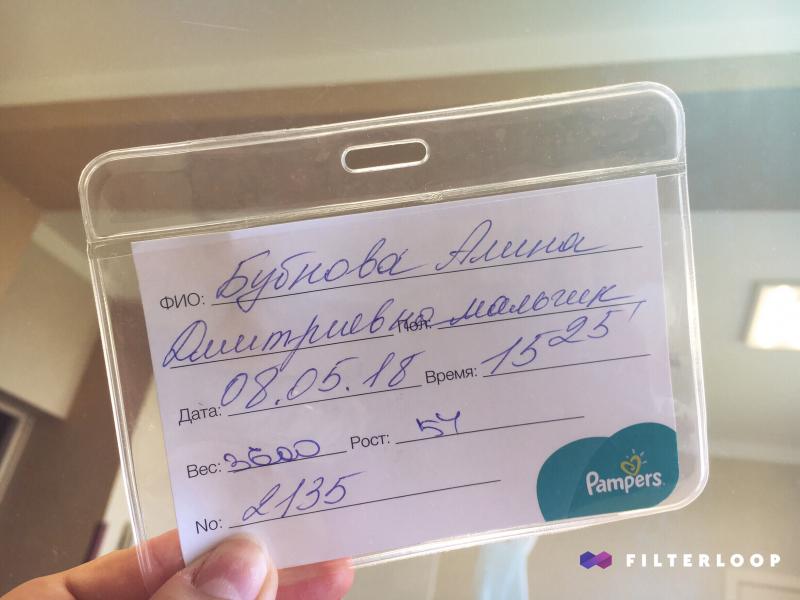 ФИО: Бубнова Алина
Дмитриевна Пол: мальчик
Дата: 08.05.18 Время: 15 25'
Вес: 3600 Рост: 54
No: 2135
Pampers
FILTERLOOP